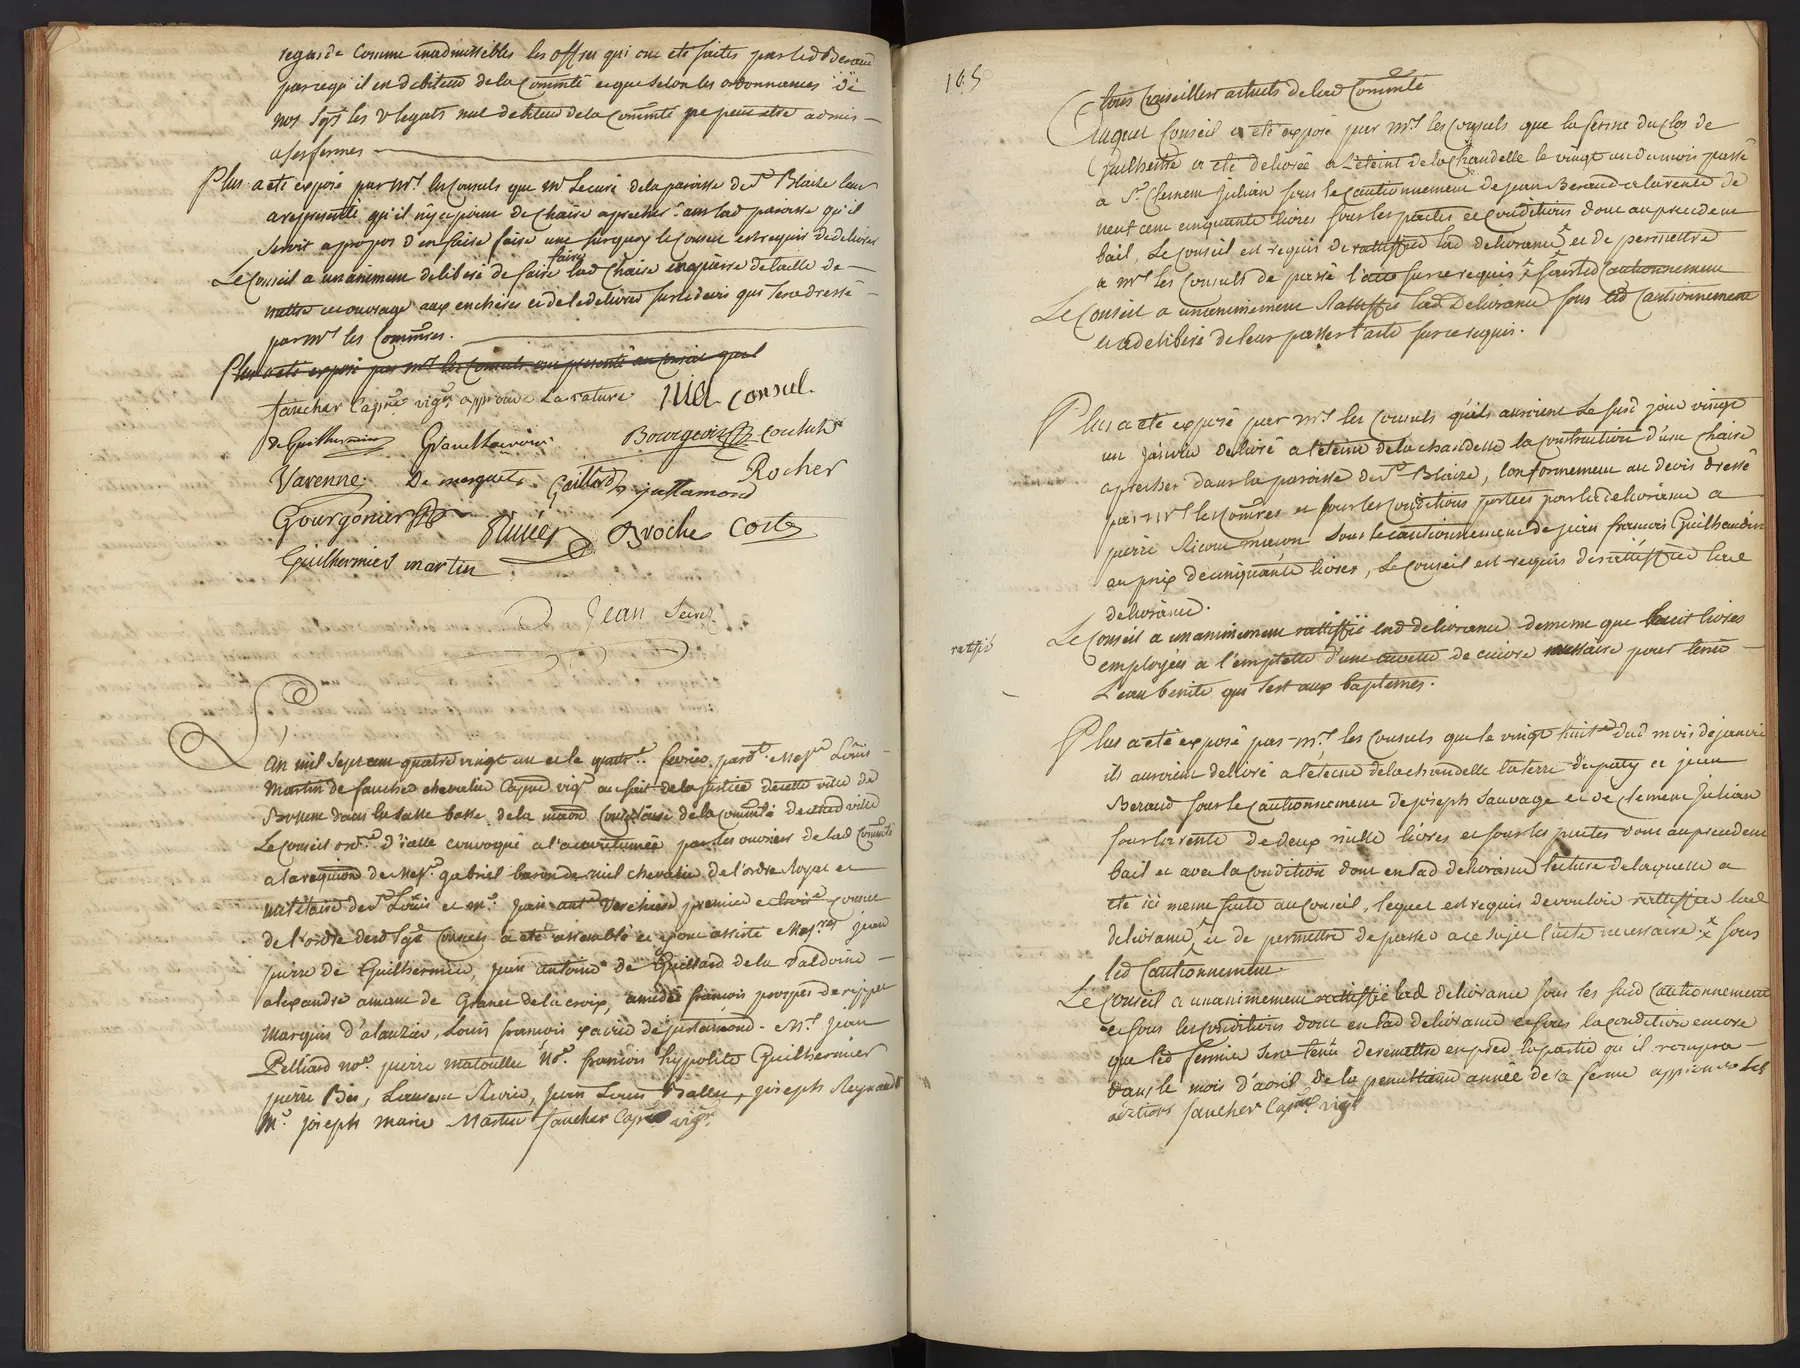 regarde Comme inadmissibles les offres qui ont eté faites par led Beraud
parcequ'il en debiteur de la Comm̃té et que selon les ordonnances de
nos Sgrs les Vlegats nul debiteur de la Comm̃té ne peut etre admis
a ses fermes
Plus a eté exposé par Mrs les Consuls que Mr Le curé de la paroisse de St Blaise leur
a representé qu'il n'y a point de Chaire a precher dans lad paroisse qu'il
seroit a propos d'en faire faire une surquoy le Conseil est requis de deliberer
Le Conseil a unanimem deliberé de faire faire lad Chaire en pierre de taille de
mettre cet ouvrage aux encheres et de le delivrer sur le devis qui sera dressé
par Mrs les Comm̃res.
Plus a eté exposé par Mrs les Consuls ont presenté au conseil que
faucher Capne vigr approuve La rature Niel Consul.
de Guilhermier Granet Lacroix Bourgeois Consul
Varenne De merquet Gaillard justamond Rocher
Gourgonier Olivier Broche Coste
Guilhermier martin
Jean Secre
L'An mil sept cent quatre vingt un et le quatre fevrier pardt Messre Louis
Martin de faucher chevalier Capne vigr au fait de la justice de cette ville de
Bollene dans la Salle basse de la maison Consulaire de la Comm̃té de lad ville
Le Conseil ordre d'icelle convoqué a l'accoutumée par les ouvriers de lad Comm̃té
a la requition de Messre gabriel baron de niel chevalier de l'ordre Royal et
militaire de St Louis et Mr jean antne Verchiere premier et
de l'ordre desd Sgrs Consuls a eté assemblé et y ont assisté Messres jean
pierre de Guilhermier, jean antoine de Guillard de la Valdoine
alexandre amant de Granet de la croix, amedée francois prosper de rippert
Marquis d'alauzier, Louis francois xavier de justamond. Mrs jean
Pelliard nore pierre matoullet nore francois hyppolite Guilhermier
pierre Bès, Laurent Rivier, jean Louis Ballet, joseph Reynaud
Mr joseph marie Martin faucher Capne vigr
105
tous Conseillers actuels de lad Comm̃té
Auquel Conseil a eté exposé par Mrs les Consuls que la ferme du Clos de
Guilherme a eté delivrée a l'éteint de la Chandelle le vingt un du mois passé
a Sr Clement Julian sous le cautionnement de jean Beraud a la rente de
neuf cent cinquante livres sous les pactes et conditions dont au precedent
bail, Le Conseil est requis de rattiffier lad delivrance et de permettre
a Mrs les Consuls de passer l'acte sur ce requis sous led Cautionnement
Le Conseil a unanimement Rattiffié lad Delivrance sous led Cautionnement
et a deliberé de leur passer l'acte sur ce requis.
Plus a eté exposé par Mrs les Consuls qu'ils auroient Le susd jour vingt
un janvier delivré a l'eteint de la chandelle la construction d'une chaire
a precher dans la paroisse de St Blaise, Conformement au devis dressé
par Mrs les Com̃res et sous les conditions portées par la delivrance a
pierre Ricou maçon sous le cautionnement de jean francois Guilhaudin
au prix de cinquante livres, Le Conseil est requis de rattiffier lad
delivrance.
ratifié
Le Conseil a unanimement rattiffié lad delivrance de meme que huit livres
employées a l'emplette d'une cuvette de cuivre necessaire pour tenir
L'eau benite qui sert aux baptemes.
Plus a eté exposé par Mrs les Consuls que le vingt huit dud mois de janvier
ils auroient delivré a l'eteint de la chandelle la terre du paty a jean
Beraud sous le cautionnement de joseph Sauvage et de Clement Julian
sous la rente de deux mille livres et sous les pactes dont au precedent
bail et avec la condition dont en lad delivrance lecture de laquelle a
eté ici meme faite au Conseil, lequel est requis de vouloir rattiffier lad
delivrance, et de permettre de passer a ce sujet l'acte necessaire sous
led Cautionnement.
Le Conseil a unanimement rattiffié lad delivrance sous les susd Cautionnement
et sous les conditions dont en lad delivrance et sous la condition encore
que led fermier sera tenu de remettre en pred la partie qu'il rompra
dans le mois d'avril de la penultieme année de sa ferme approuvé les
aditions faucher Capne vigr